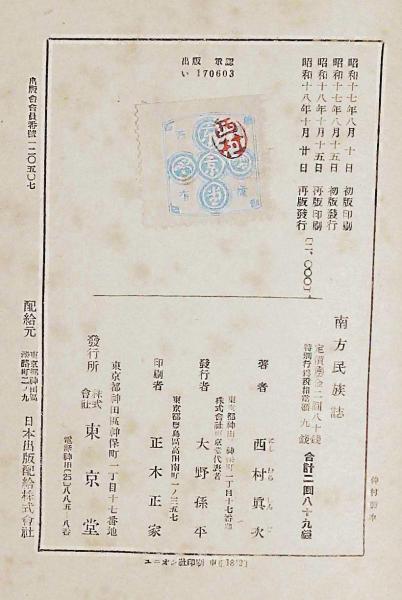 出版會承認
い 170603
昭和十七年八月 十 日 初版印刷
昭和十七年八月十五日 初版發行
昭和十八年十月十五日 再版印刷
昭和十八年十月 廿 日 再版發行
西村
東京堂
南方民族誌
合計二圓八十九錢
著者 西村眞次
にし むら しん じ
東京都神田區神保町一丁目十七番地
株式會社東京堂代表者
發行者 大野孫平
東京都豊島區高田南町一ノ三五七
印刷者 正木正家
東京都神田區神保町一丁目十七番地
發行所 株式會社 東京堂
電話神田(25)
出版會會員番號一二〇五〇七
配給元 東京都神田區淡路町二ノ九 日本出版配給株式會社
ユニオン社印刷